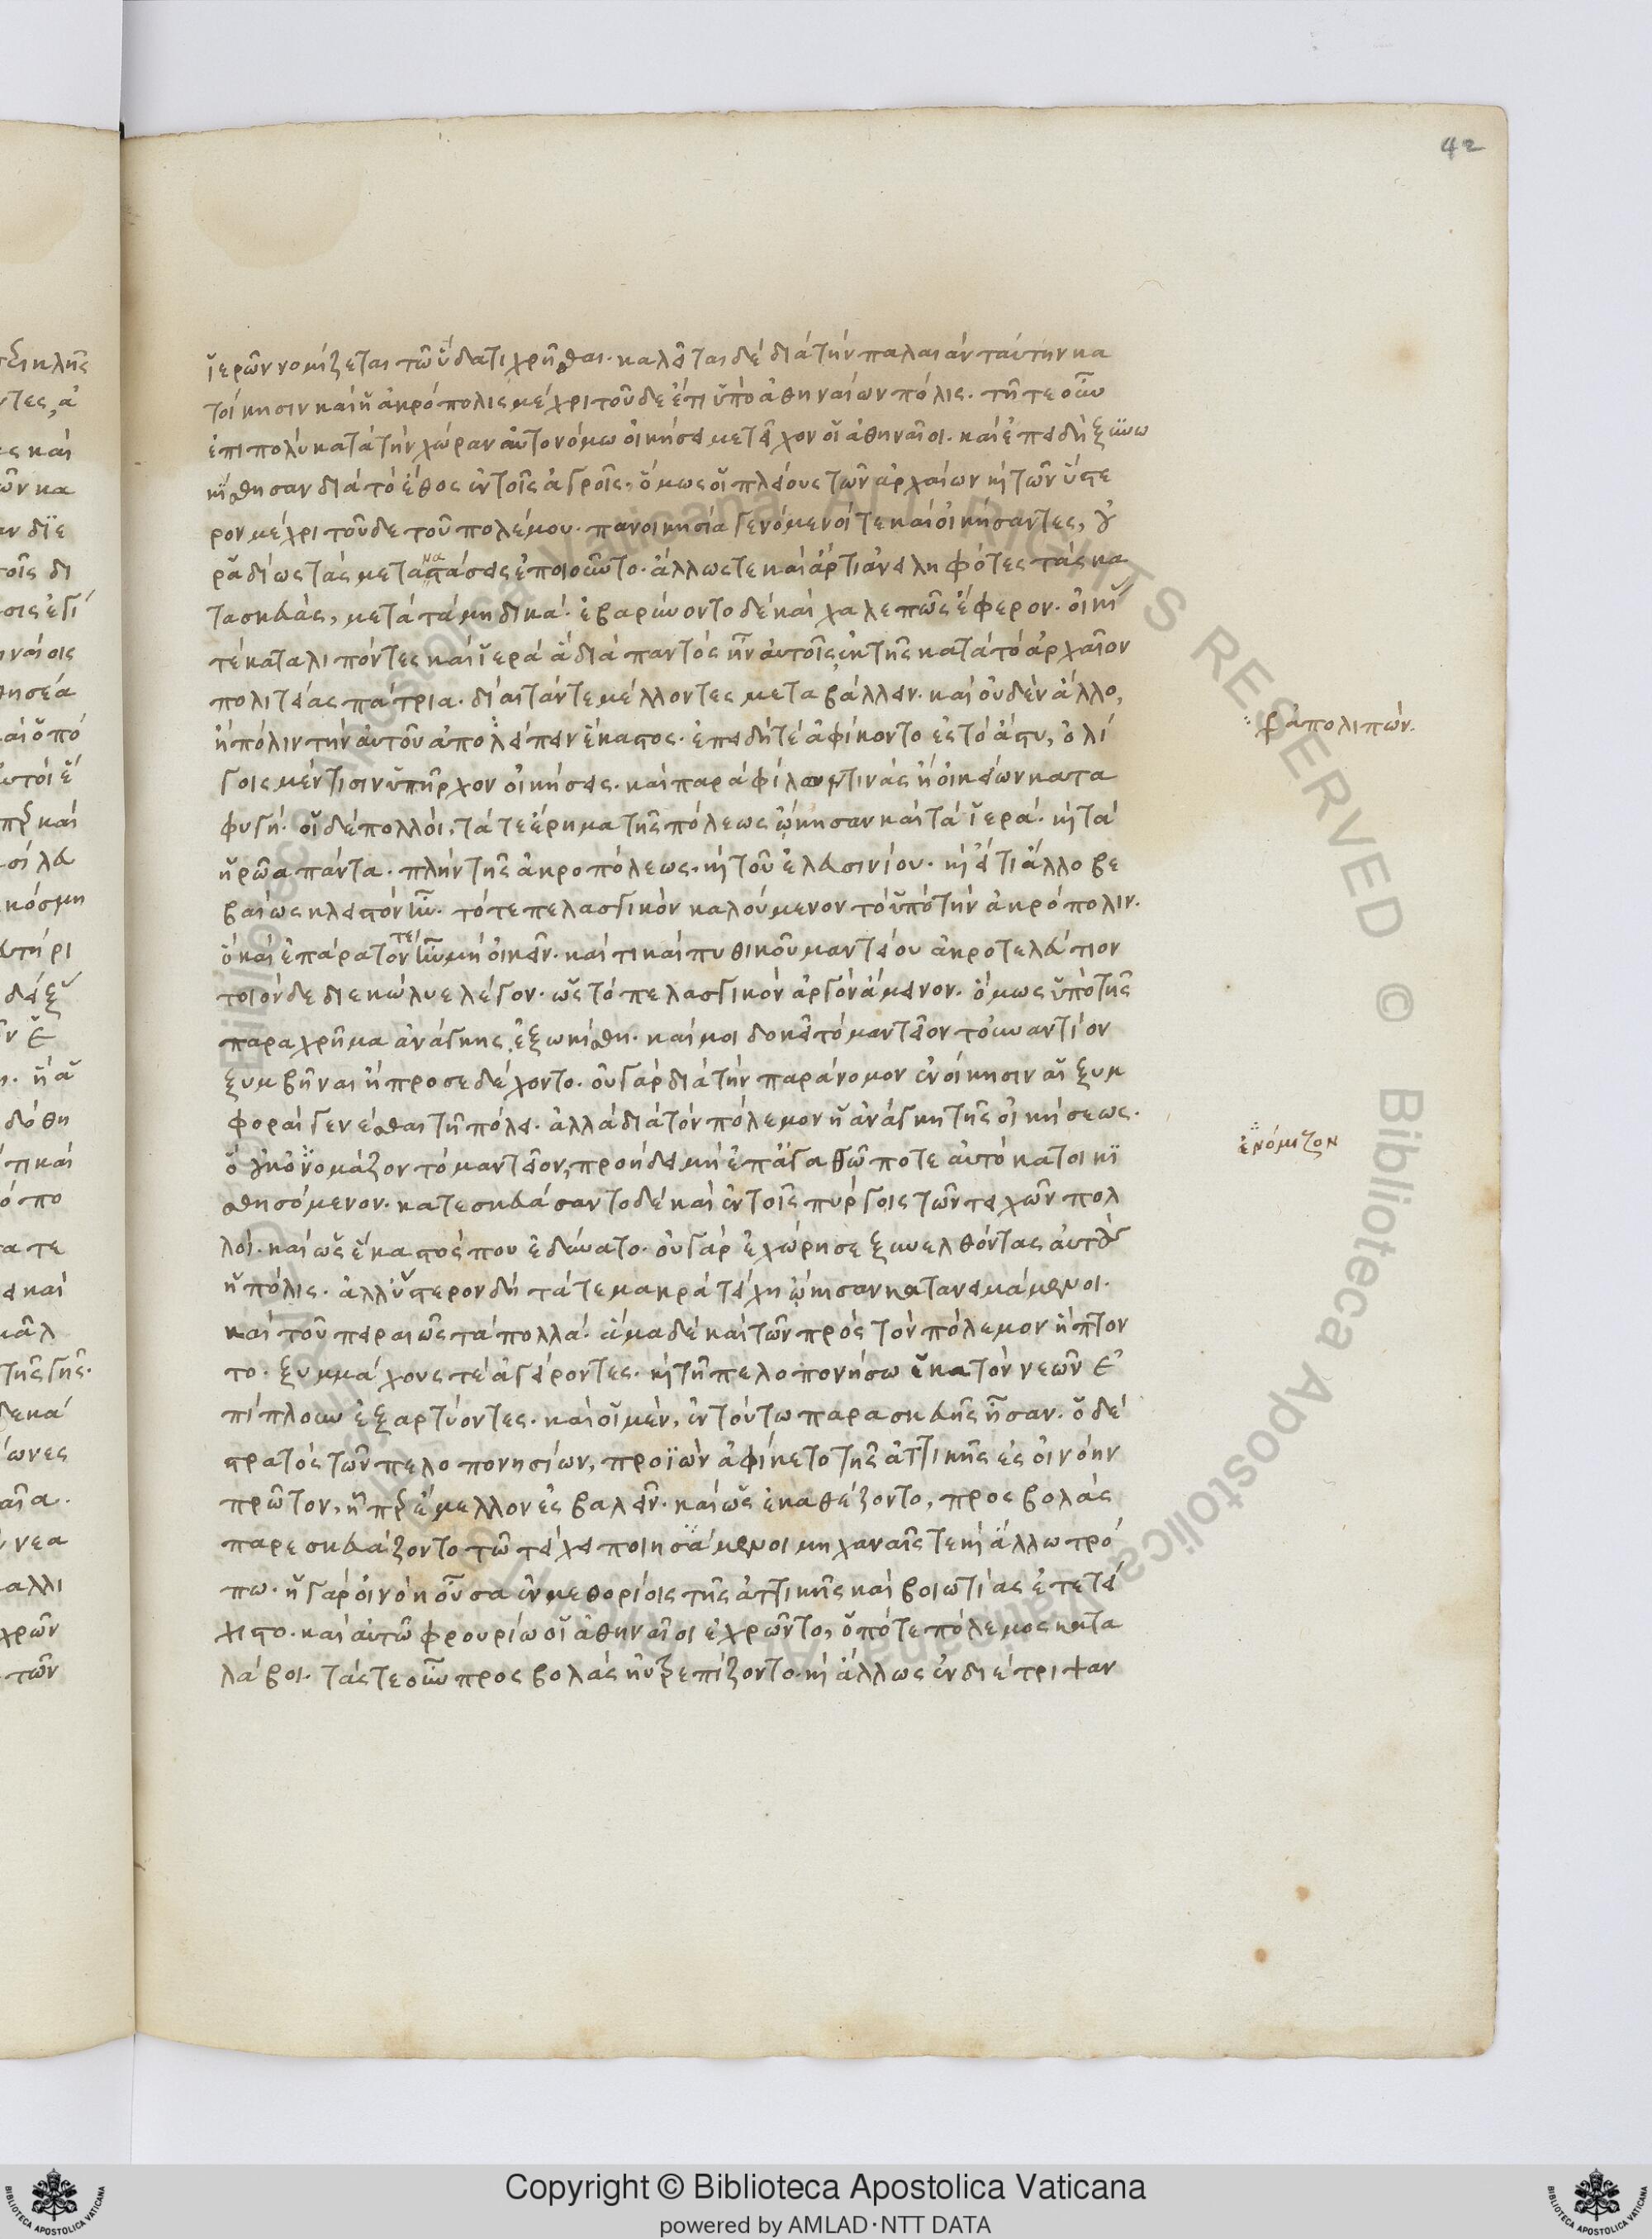 42
ἱερῶν νομίζεται τῶ ὕδατι χρῆσθαι· καλεῖται δὲ διὰ τὴν παλαιὰν ταύτην κα
τοίκησιν καὶ ἡ ἀκρόπολις μέχρι τοῦδε ἔτι ὑπὸ ἀθηναίων πόλις· τῆ τε οὖν
ἐπιπολὺ κατὰ τὴν χώραν αὐτονόμω οἰκήσει μετεῖχον οἱ ἀθηναῖοι· καὶ ἐπειδὴ ξυνω
κίσθησαν διὰ τὸ ἔθος ἐν τοῖς ἀγροῖς· ὅμως οἱ πλείους τῶν ἀρχαίων καὶ τῶν ὕστε
ρον μέχρι τοῦδε τοῦ πολέμου· πανοικησία γενόμενοί τε καὶ οἰκήσαντες, οὐ
ῥαδίως τὰς μεταναστάσεις ἐποιοῦντο· ἄλλως τε καὶ ἄρτι ἀνειληφότες τὰς κα
τασκευὰς, μετὰ τὰ μηδικά· ἐβαρύνοντο δὲ καὶ χαλεπῶς ἔφερον· οἰκί
τέ καταλιπόντες καὶ ἱερὰ ἃ διὰ παντὸς ἦν αὐτοῖς ἐκ τῆς κατὰ τὸ ἀρχαῖον
πολιτείας πάτρια· δίαιτάν τε μέλλοντες μεταβάλλειν· καὶ οὐδὲν ἄλλο,
ἢ πόλιν τὴν αὐτοῦ ἀπολείπειν ἕκαστος· ἐπειδή τέ ἀφίκοντο ἐς τὸ ἄστυ, ὀλί
γοις μέν τισιν ὑπῆρχον οἰκήσεις· καὶ παρὰ φίλων τινὰς ἢ οἰκείων κατα
φυγή· οἱ δὲ πολλοὶ, τά τε ἔρημα τῆς πόλεως ᾤκησαν καὶ τὰ ἱερὰ· καὶ τὰ
ἡρῶα πάντα· πλὴν τῆς ἀκροπόλεως· καὶ τοῦ ἐλευσινίου· καὶ εἴ τι ἄλλο βε
βαίως κλειστὸν ἦν· τό τε πελασγικὸν καλούμενον τὸ ὑπὸ τὴν ἀκρόπολιν·
ὃ καὶ ἐπάρατόν τε ἦν μὴ οἰκεῖν· καί τι καὶ πυθικοῦ μαντείου ἀκροτελεύτιον
τοιόνδε διεκώλυε λέγον· ὡς τὸ πελασγικὸν ἀργὸν ἄμεινον· ὅμως ὑπὸ τῆς
παραχρῆμα ἀνάγκης ἐξωκίσθη· καί μοι δοκεῖ τὸ μαντεῖον τοὐναντίον
ξυμβῆναι ἢ προσεδέχοντο· οὐ γὰρ διὰ τὴν παράνομον ἐνοίκησιν αἱ ξυμ
φοραὶ γενέσθαι τῆ πόλει· ἀλλὰ διὰ τὸν πόλεμον ἡ ἀνάγκη τῆς οἰκήσεως·
ὃ οὐκ ὀνομάζον τὸ μαντεῖον, προήδει μὴ ἐπ' ἀγαθῶ ποτε αὐτὸ κατοικι
σθησόμενον· κατεσκευάσαντο δὲ καὶ ἐν τοῖς πύργοις τῶν τειχῶν πολ
λοί· καὶ ὡς ἕκαστός που ἐδύνατο· οὐ γὰρ ἐχώρησε ξυνελθόντας αὐτοὺς
ἡ πόλις· ἀλλ' ὕστερον δὴ τά τε μακρὰ τείχη ᾤκησαν κατανειμάμενοι·
καὶ τοῦ πειραιῶς τὰ πολλά· ἅμα δὲ καὶ τῶν πρὸς τὸν πόλεμον ἥπτον
το· ξυμμάχους τέ ἀγείροντες· καὶ τῆ πελοπονήσω ἑκατὸν νεῶν ἐ
πίπλουν ἐξαρτύοντες· καὶ οἱ μὲν, ἐν τούτω παρασκευῆς ἦσαν· ὁ δὲ
στρατὸς τῶν πελοπονησίων, προϊὼν ἀφίκετο τῆς ἀττικῆς ἐς οἰνόην
πρῶτον, ἧπερ ἔμελλον ἐσβαλεῖν· καὶ ὡς ἐκαθέζοντο, προσβολὰς
παρεσκευάζοντο τῶ τείχει ποιησάμενοι μηχαναῖς τε καὶ ἄλλω τρό
πω· ἡ γὰρ οἰνόη οὖσα ἐν μεθορίοις τῆς ἀττικῆς καὶ βοιωτίας ἐτετεί
χιστο· καὶ αὐτῶ φρουρίω οἱ ἀθηναῖοι ἐχρῶντο, ὁπότε πόλεμος κατα
λάβοι· τάς τε οὖν προσβολὰς ηὐτρεπίζοντο· καὶ ἄλλως ἐνδιέτριψαν
ἀπολιπών.
ἐνόμιζον